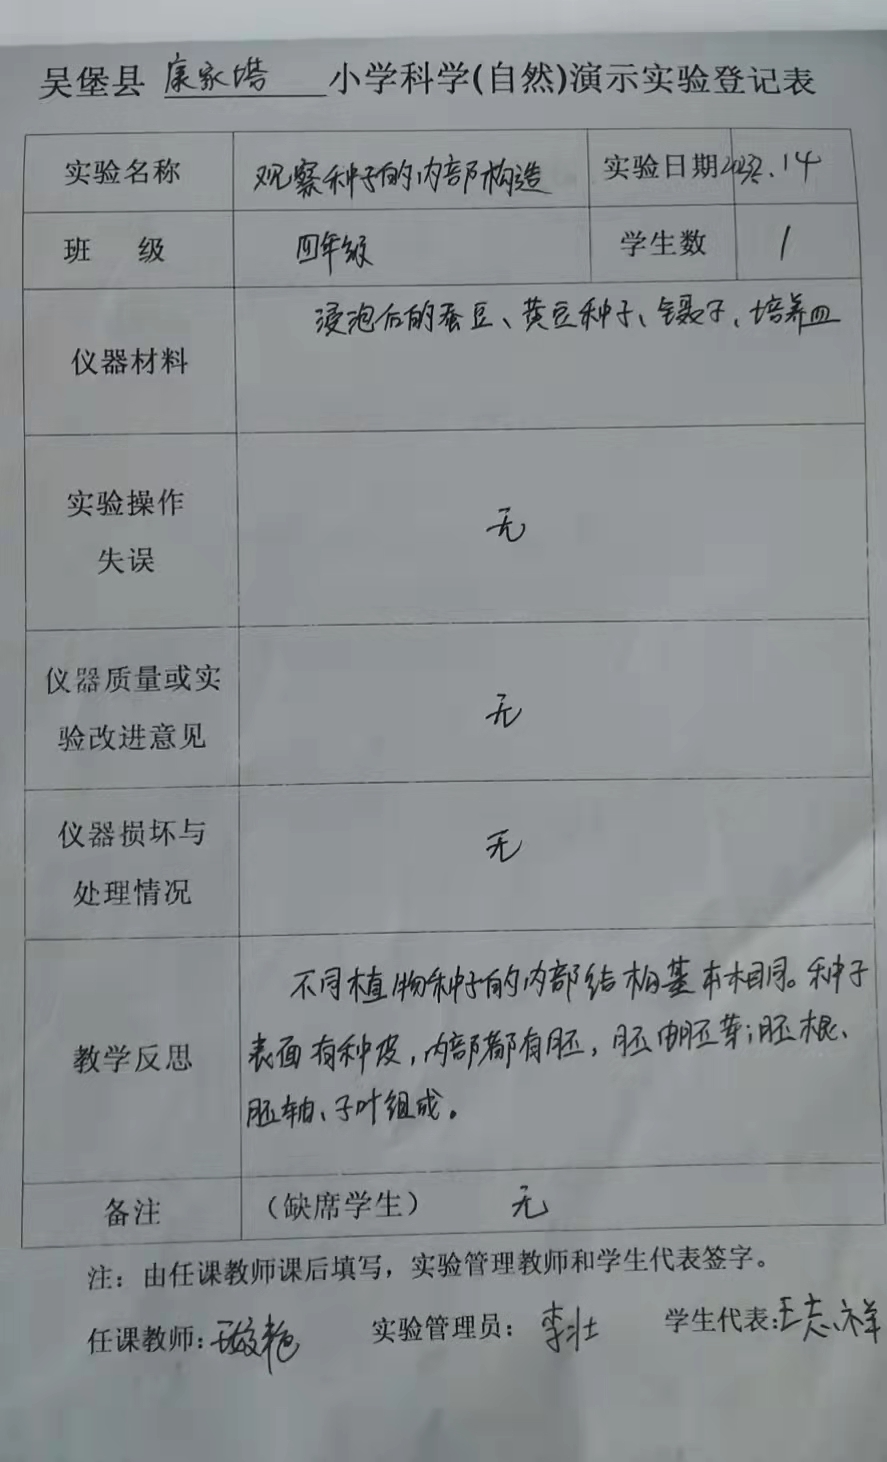 吴堡县 康家塔 小学科学(自然)演示实验登记表
实验名称 观察种子的内部构造 实验日期
班 级 四年级 学生数 1
仪器材料 浸泡后的蚕豆、黄豆种子、镊子、培养皿
实验操作
失误
无
仪器质量或实
验改进意见
无
仪器损坏与
处理情况
无
教学反思
不同植物种子的内部结构基本相同。种子
表面有种皮,内部都有胚,胚由胚芽;胚根、
胚轴、子叶组成。
备注 (缺席学生) 无
注:由任课教师课后填写,实验管理教师和学生代表签字。
任课教师: 实验管理员: 李壮 学生代表:王志祥